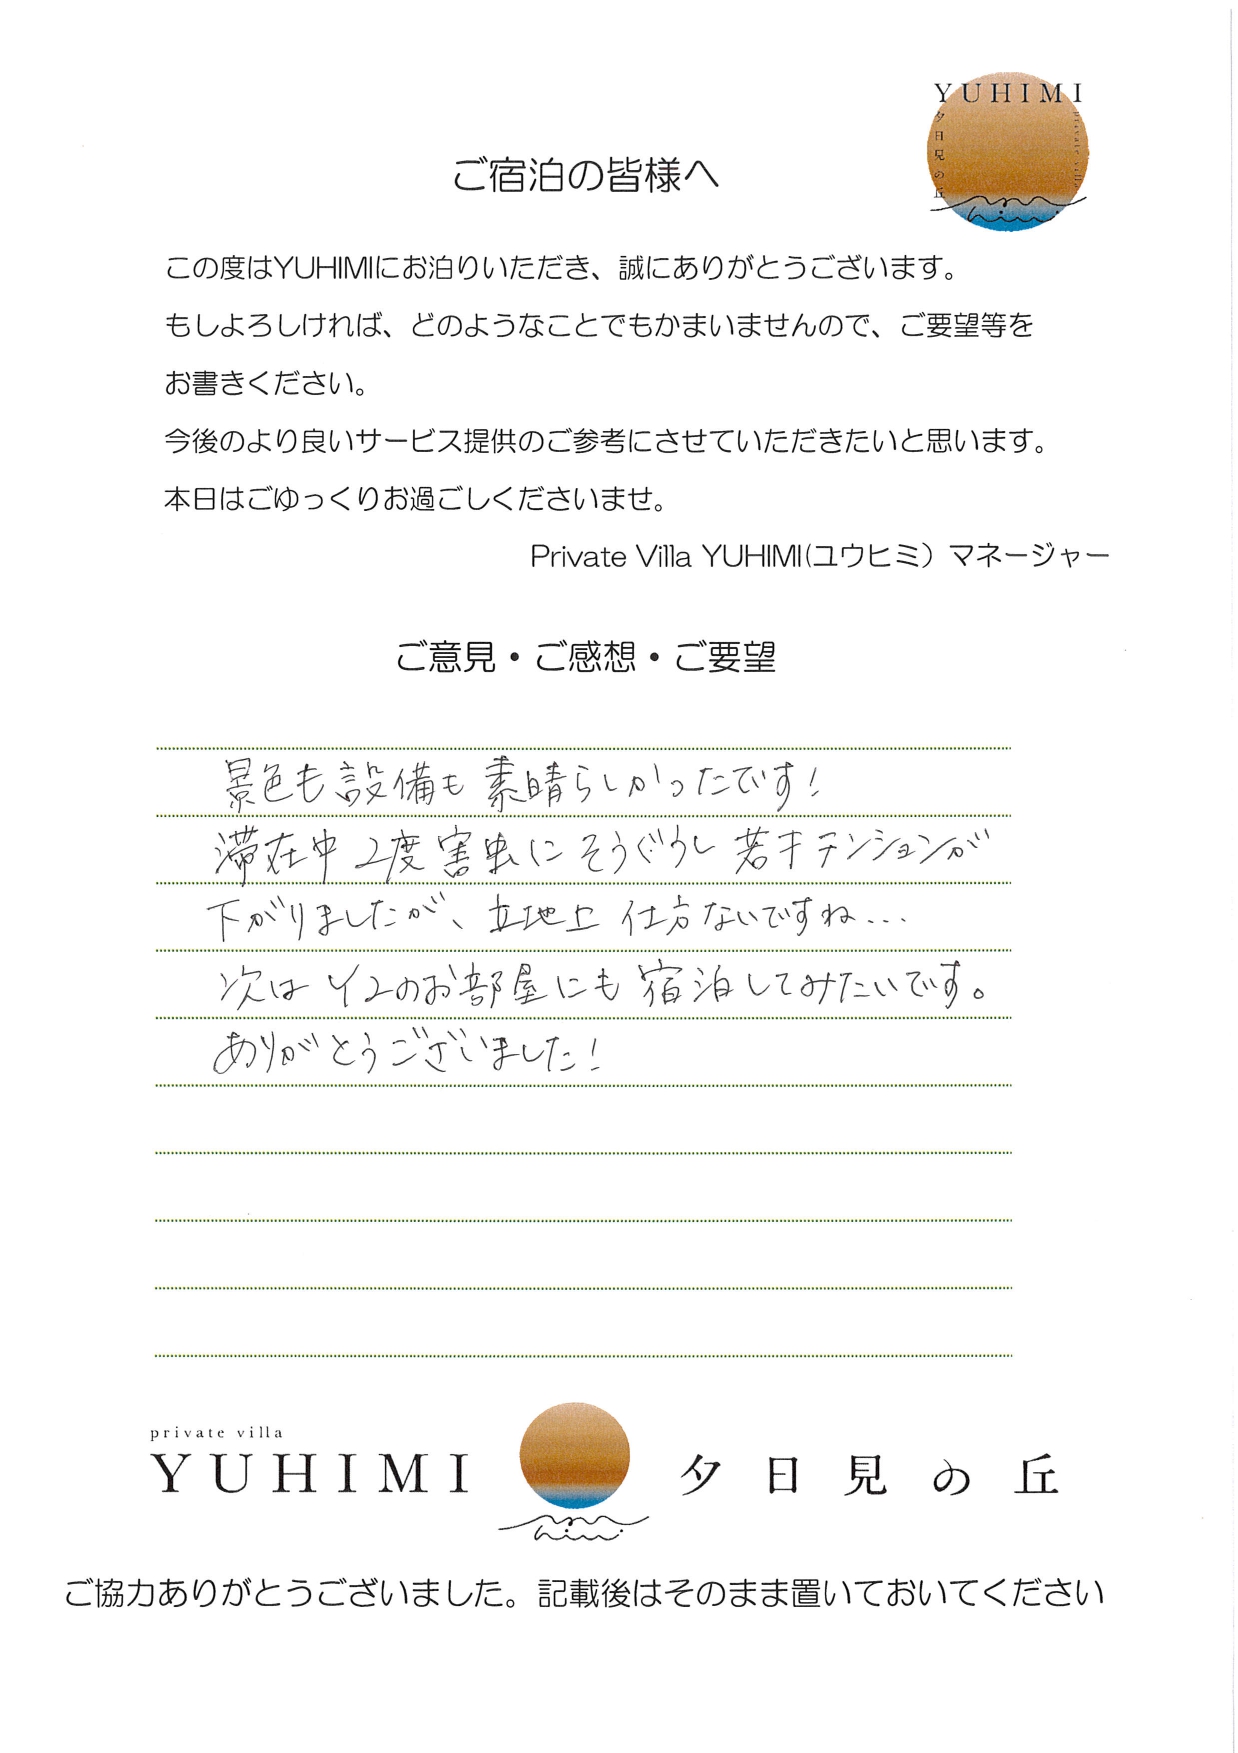 YUHIMI
夕日見の丘
private villa
ご宿泊の皆様へ
この度はYUHIMIにお泊りいただき、誠にありがとうございます。
もしよろしければ、どのようなことでもかまいませんので、ご要望等を
お書きください。
今後のより良いサービス提供のご参考にさせていただきたいと思います。
本日はごゆっくりお過ごしくださいませ。
Private Villa YUHIMI(ユウヒミ）マネージャー
ご意見・ご感想・ご要望
景色も設備も素晴らしかったです!
滞在中2度害虫にそうぐうし若干テンションが
下がりましたが、立地上仕方ないですね...
次はY2のお部屋にも宿泊してみたいです。
ありがとうございました!
private villa
YUHIMI 夕日見の丘
ご協力ありがとうございました。記載後はそのまま置いておいてください